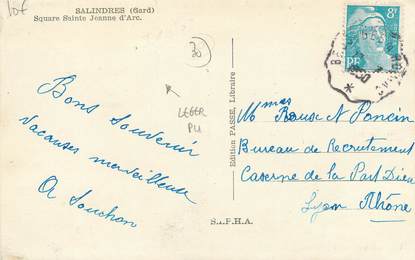 10€
SALINDRES (Gard)
Square Sainte Jeanne d'Arc.
30
LEGER
PLI
Bons souvenir
vacances merveilleuse
A Souchon
Edition PASSE, Libraire
S.I.P.H.A.
8F
RF
Mmes Rouse N Poncin
Bureau de Recrutement
Caserne de la Part Dieu
Lyon Rhône